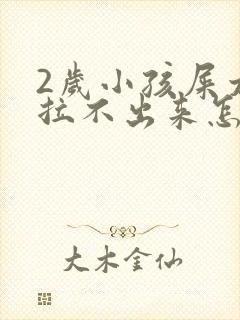 2歲小孩屎
拉不出来怎
大木金仙